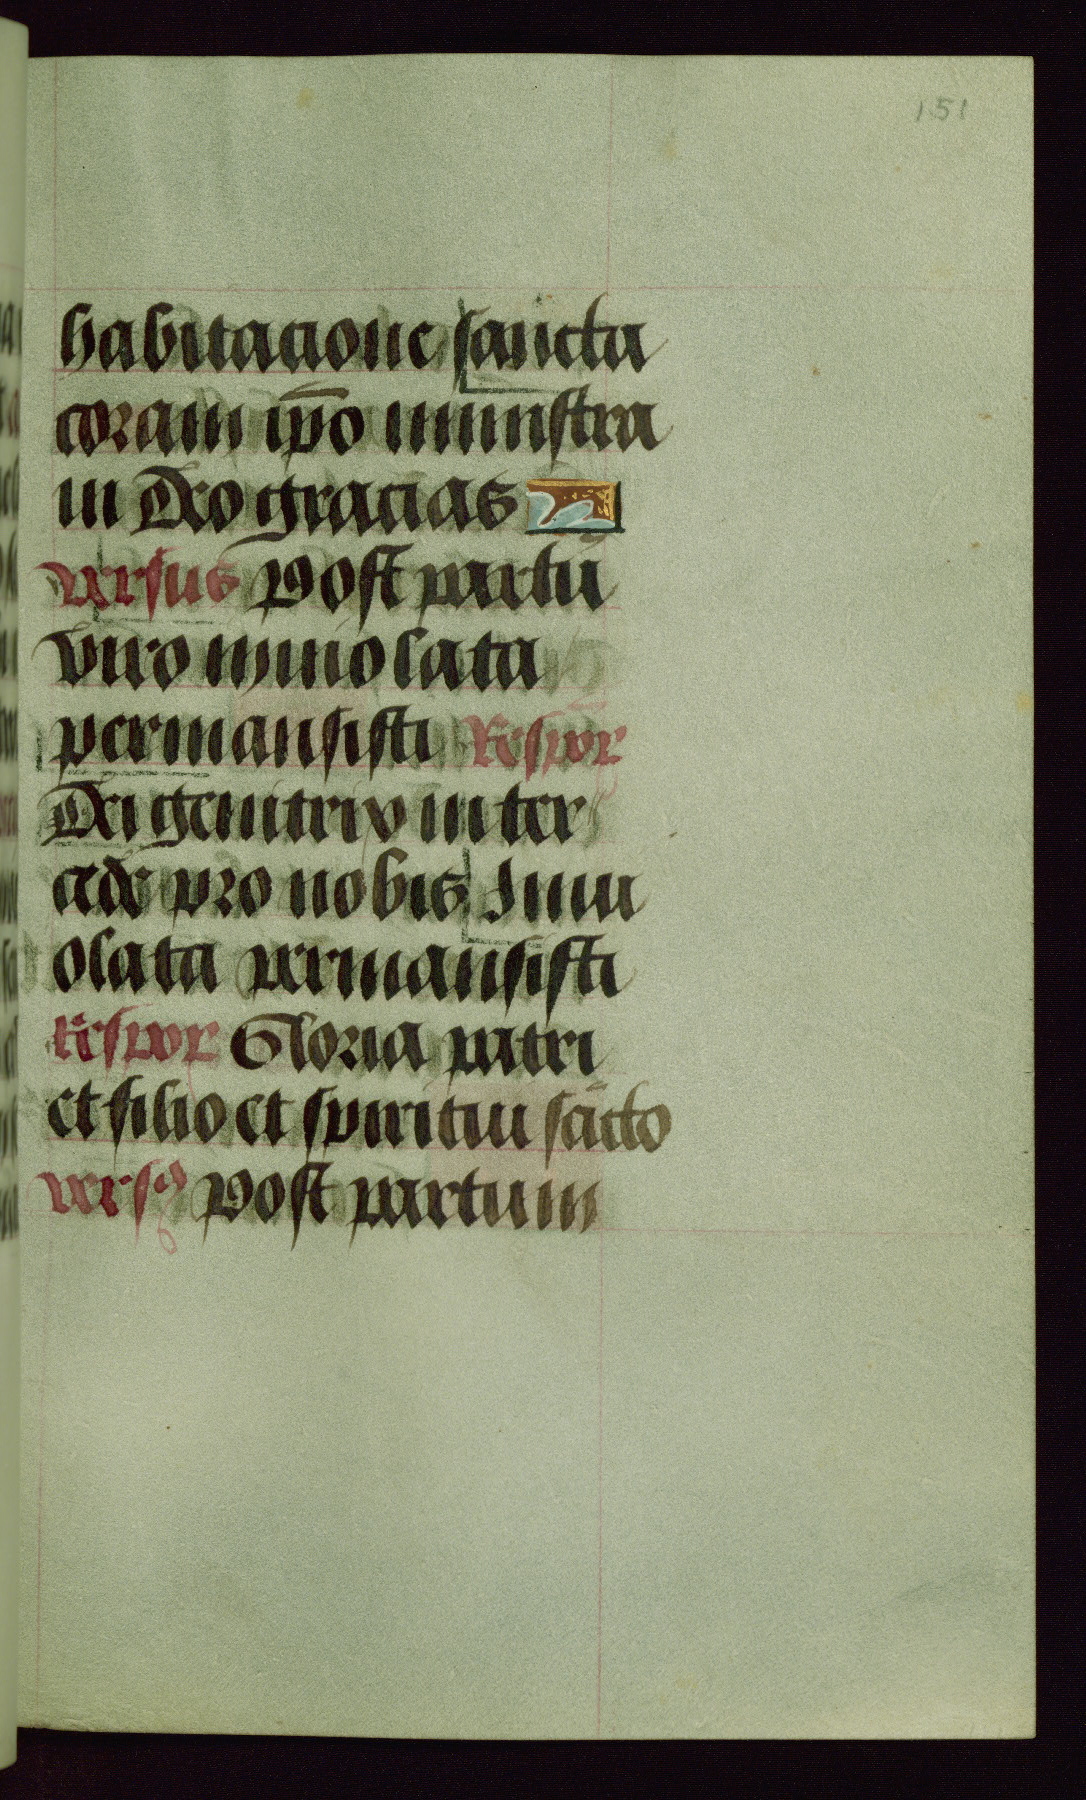 151
habitacione sancta
coram ip̄o ministra
ui Deo gracias
versus Post partū
virgo inuiolata
permansisti Respōr
Dei genitrix inter
cede pro nobis Inui
olata permansisti
Respōr Gloria patri
et filio et spiritui sācto
versꝰ Post partum